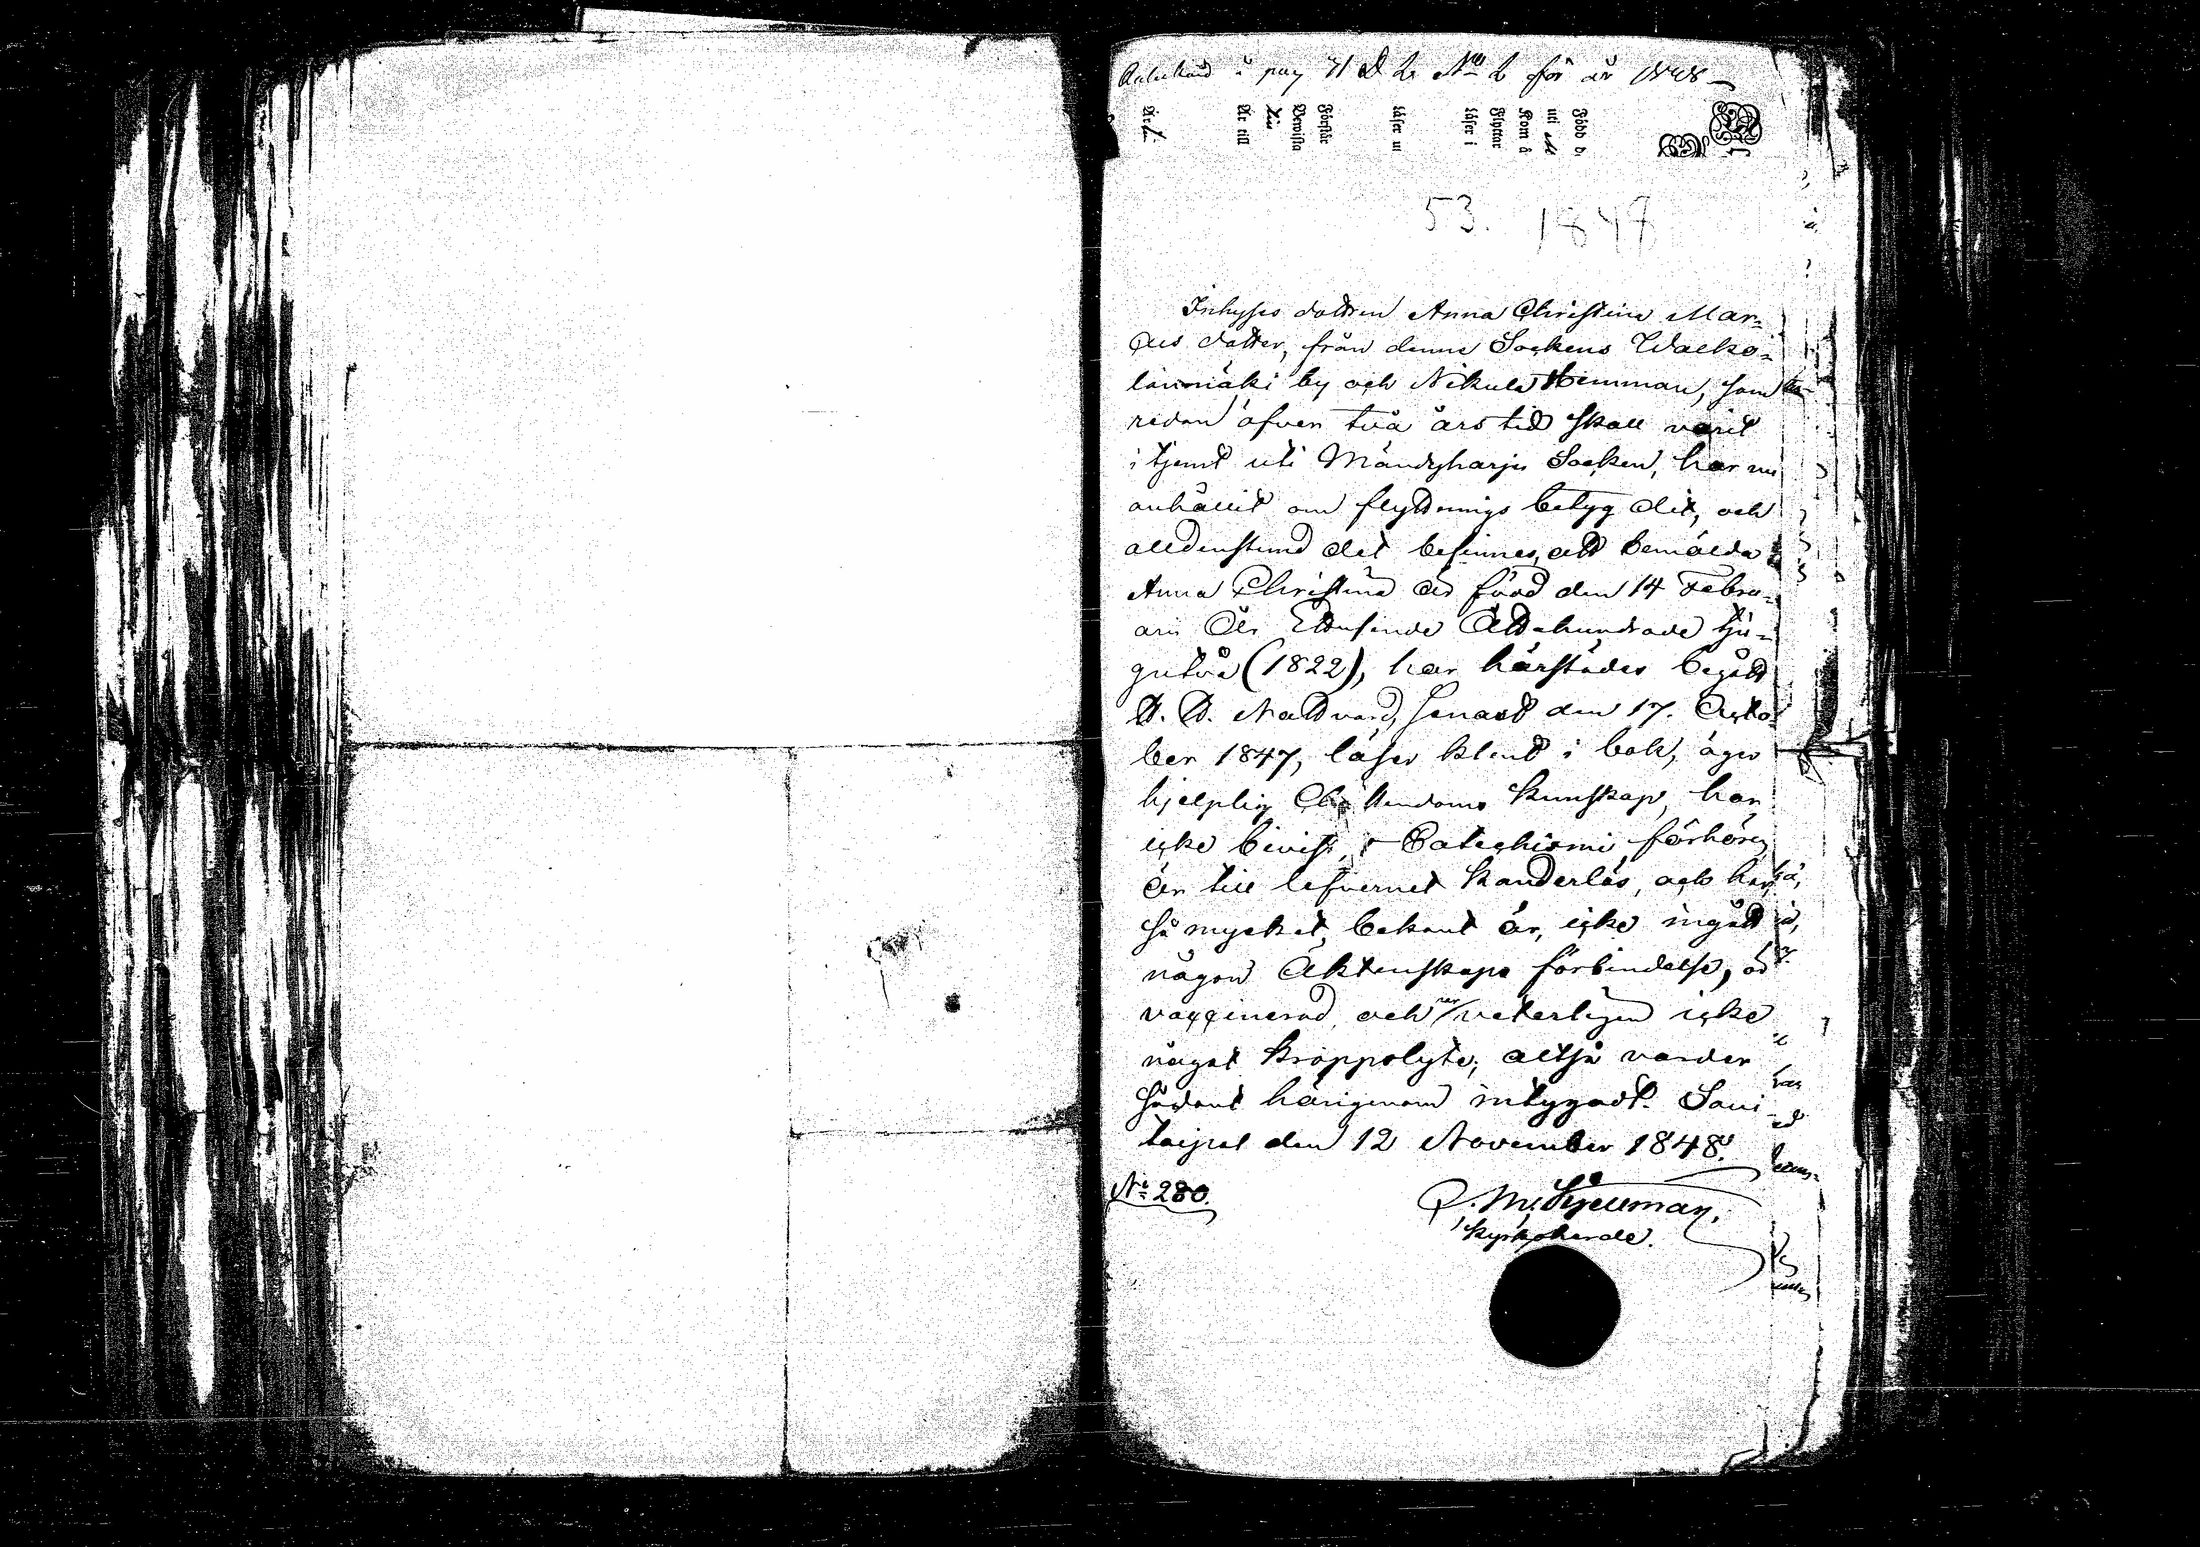 å pag 71 för år 1848
Född d.
uti
Kom d
Flyttar
läser i
läser u
Förstår
Bewista
År till
Är
53. 1847
Inhyses dottren Anna Christina Mar-
cus dotter, från denna Sockens Walko-
lanmäki by och Nikula Hemman, som
redan öfver två års tid skall varit
i tjenst uti Mändyharju Socken, har nu
anhållit om flyttnings betyg dit, och
alldenstund det befinnes, att bemälda
Anna Christina är född den 14 Febru-
arii År Ettusende Åttahundrade tju-
gutvå (1822), har härstädes begått
H. H. Nattvard, senast den 17. Octo-
ber 1847, läser klent i bok, äger
hjelplig Christendoms kunskap, har
icke bevist Catechismi förhören,
är till lefvernet klanderlös, och har,
så mycket bekant är, icke ingått
någon Äktenskaps förbindelse, är
vaccinerad, och har veterligen icke
något kroppslyte; altså varder
sådant härigenom intygadt. Savi-
taipal den 12 November 1848.
No 280.
Kyrkoherde.